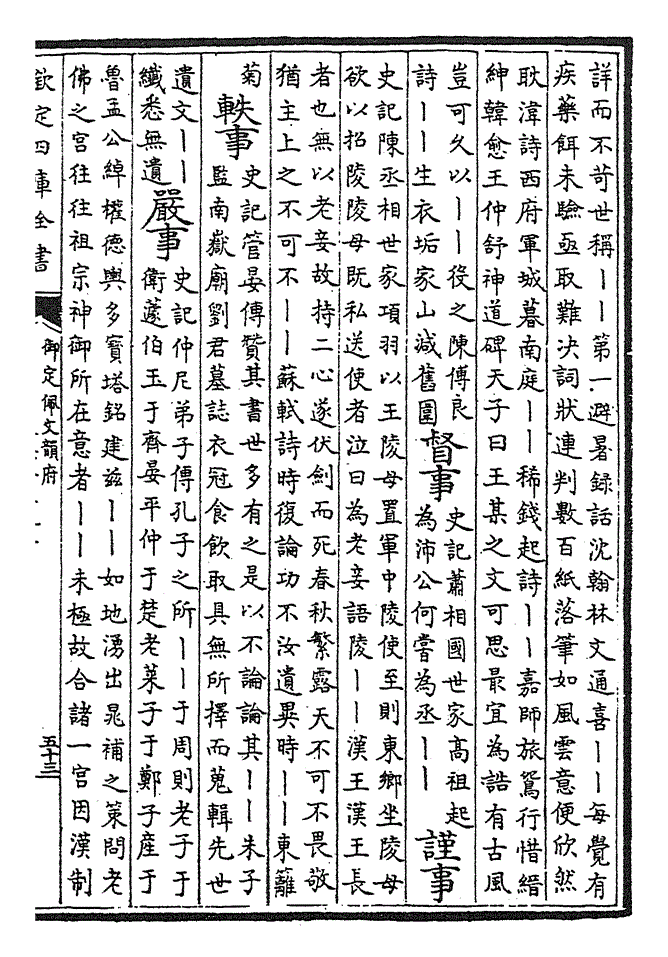 詳而不苛世稱——第一避暑録話沈翰林文通喜——每覺有
疾藥餌未驗亟取難决詞狀連判數百紙落筆如風雲意便欣然
耿湋詩西府軍城暮南庭——稀錢起詩——嘉師旅鴛行惜縉
紳韓愈王仲舒神道碑天子曰王某之文可思最宜為誥有古風
豈可久以——役之陳傅良
詩——生衣垢家山減舊圍
督事
史記蕭相國世家高祖起
為沛公何嘗為丞——
謹事
史記陳丞相世家項羽以王陵母置軍中陵使至則東鄉坐陵母
欲以招陵陵母既私送使者泣曰為老妾語陵——漢王漢王長
者也無以老妾故持二心遂伏劍而死春秋繁露天不可不畏敬
猶主上之不可不——蘇軾詩時復論功不汝遺異時——東籬
菊
軼事
史記管晏傳贊其書世多有之是以不論論其——朱子
監南嶽廟劉君墓誌衣冠食飲取具無所擇而蒐輯先世
遺文——
纖悉無遺
嚴事
史記仲尼弟子傳孔子之所——于周則老子于
衛蘧伯玉于齊晏平仲于楚老萊子于鄭子產于
魯孟公綽權德輿多寶塔銘建兹——如地湧出晁補之策問老
佛之宫往往祖宗神御所在意者——未極故合諸一宫因漢制
欽定四庫全書
御定佩文韻府
五十三